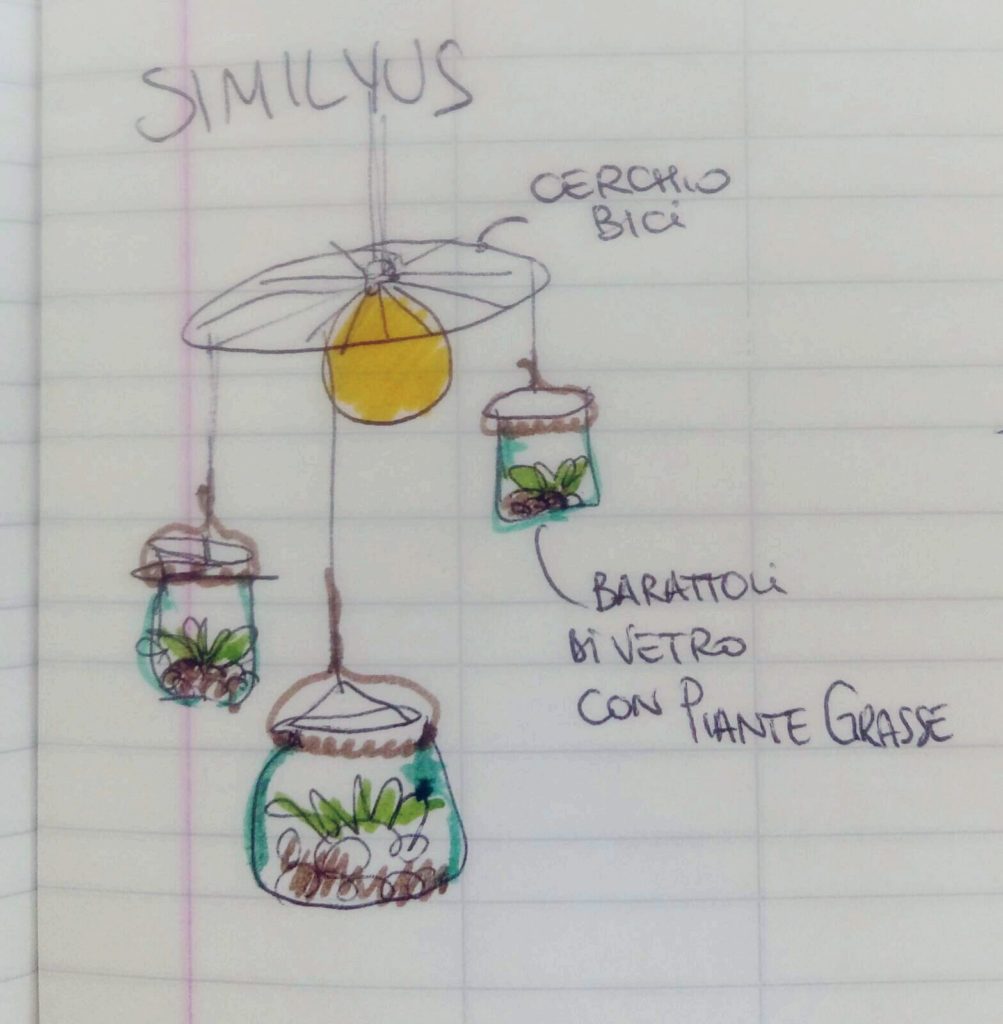 SIMILYUS
CERCHIO
BICi
BARATTOLi
Di VETRO
CON PIANTE GRASSE